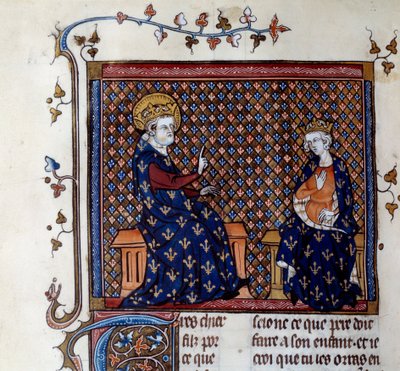 Tres chier
filz por
ce que
selonc ce que pere doit
faire a son enfant. et ie
croi que tu les orras en